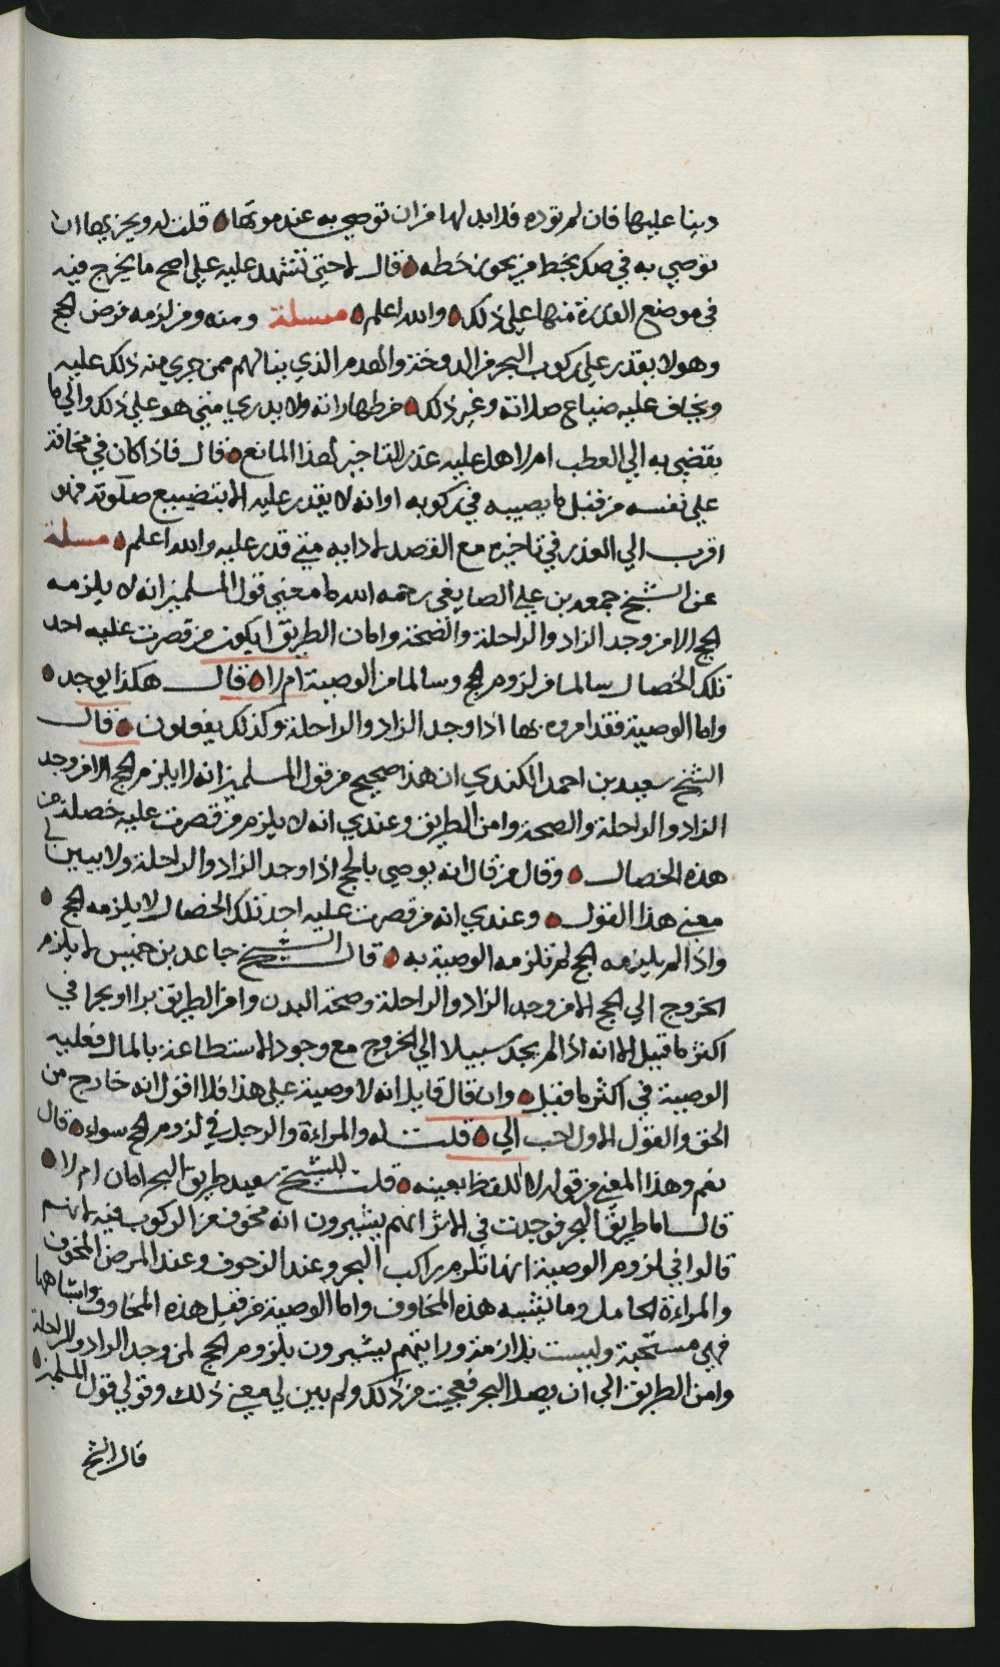 دينا عليها فان لم توده فلا بد لها من ان توصي به عند موتها ۝ قلت له ويجزيها ان
توصي به في صك بخط من يجوز خطه ۝ قال لا حتى تشهد عليه علي اصح ما يخرج فيه
في موضع القدرة منها علي ذلك ۝ والله اعلم ۝ مسئلة ومنه ومن لزمه فرض الحج
وهو لا يقدر علي ركوب البحر من الدوخة والهدم الذي ينالهم ممن جري منه ذلك عليه
ويخاف عليه ضياع صلاته وغير ذلك ۝ من طهاراته ولا يدري متي هو علي ذلك والي ما
يقضي به الي العطب ام لا هل عليه عذر التاخير لهذا المانع ۝ قال فاذا كان في مخافة
علي نفسه من قبل ما يصيبه في ركوبه او انه لا يقدر عليه الا بتضييع صلوته فهو
اقرب الي العذر في تاخيره مع القصد لادايه متي قدر عليه والله اعلم ۝ مسئلة
عن الشيخ جمعه بن علي الصايغي رحمه الله ما معني قول المسلمين انه لا يلزمه
الحج الا من وجد الزاد والراحلة والصحة وامان الطريق ايكون من قصرت عليه احد
تلك الخصال سالما من لزوم الحج وسالما من الوصية ام لا ۝ قال هكذا يوجد ۝
واما الوصية فقد امروه بها اذا وجد الزاد والراحلة وكذلك يفعلون ۝ قال
الشيخ سعيد بن احمد الكندي ان هذا صحيح من قول المسلمين انه لا يلزم الحج الا من وجد
الزاد والراحلة والصحة وامن الطريق وعندي انه لا يلزم من قصرت عليه خصلة من
هذه الخصال ۝ وقال من قال انه يوصي بالحج اذا وجد الزاد والراحلة ولا يبين لي
معني هذا القول ۝ وعندي انه من قصرت عليه احد تلك الخصال لا يلزمه الحج ۝
واذا لم يلزمه الحج لم تلزمه الوصية به ۝ قال الشيخ جاعد بن خميس لا يلزم
الخروج الي الحج الا من وجد الزاد والراحلة وصحة البدن وامن الطريق برا او بحرا في
اكثر ما قيل الا انه اذا لم يجد سبيلا الي الخروج مع وجود الاستطاعة بالمال فعليه
الوصية في اكثر ما قيل ۝ وان قال قايل انه لا وصية علي هذا فلا اقول انه خارج من
الحق والقول الاول احب الي ۝ قلت له والمراءة والرجل في لزوم الحج سواء ۝ قال
نعم وهذا المعني من قوله لا اللفظ بعينه ۝ قلت للشيخ سعيد طريق البحر امان ام لا ۝
قال اما طريق البحر فوجدت في الاثر انهم يشيرون انه مخوف من الركوب فيه لانهم
قالوا في لزوم الوصية انها تلزم راكب البحر وعند الزحوف وعند المرض المخوف
والمراءة الحامل وما يشبه هذه المخاوف واما الوصية من قبل هذه المخاوف واشباهها
فهي مستحبة وليست بلازمة ورايتهم يشيرون بلزوم الحج لمن وجد الزاد والراحلة
وامن الطريق الي ان يصل البحر فعجبت من ذلك ولم يبين لي معني ذلك وقولي قول المسلمين ۝
قال الشيخ